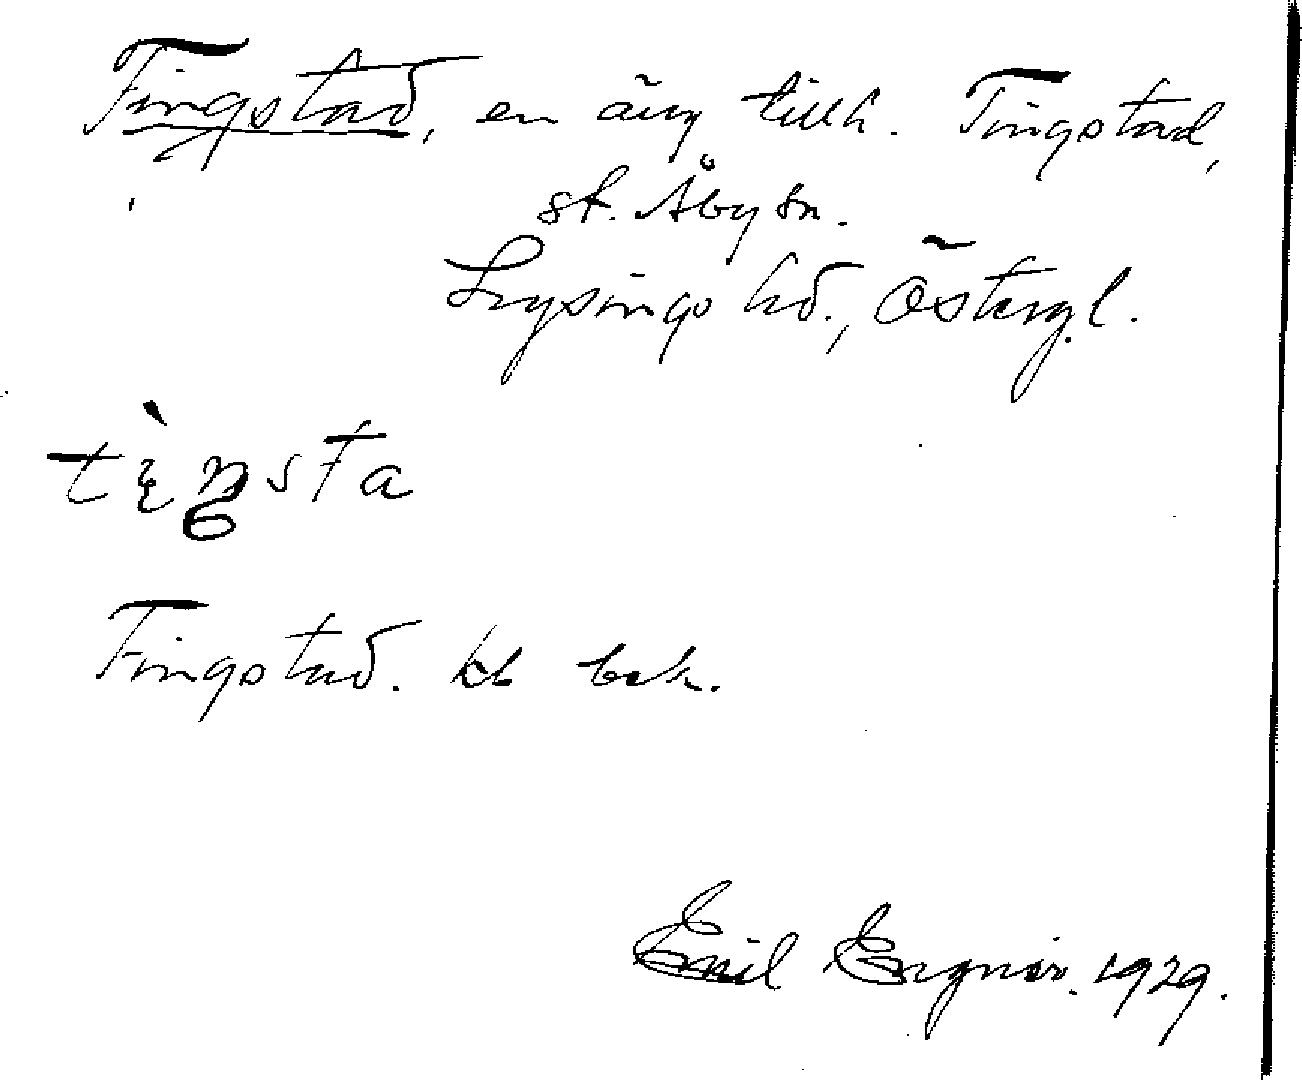 Tingstad, en äng tillh. Tingstad,
st. Åby sn.
Lysings hd., Östergl.
tìŋsta
Tingstad. kb bek.
Emil Egnér. 1929.